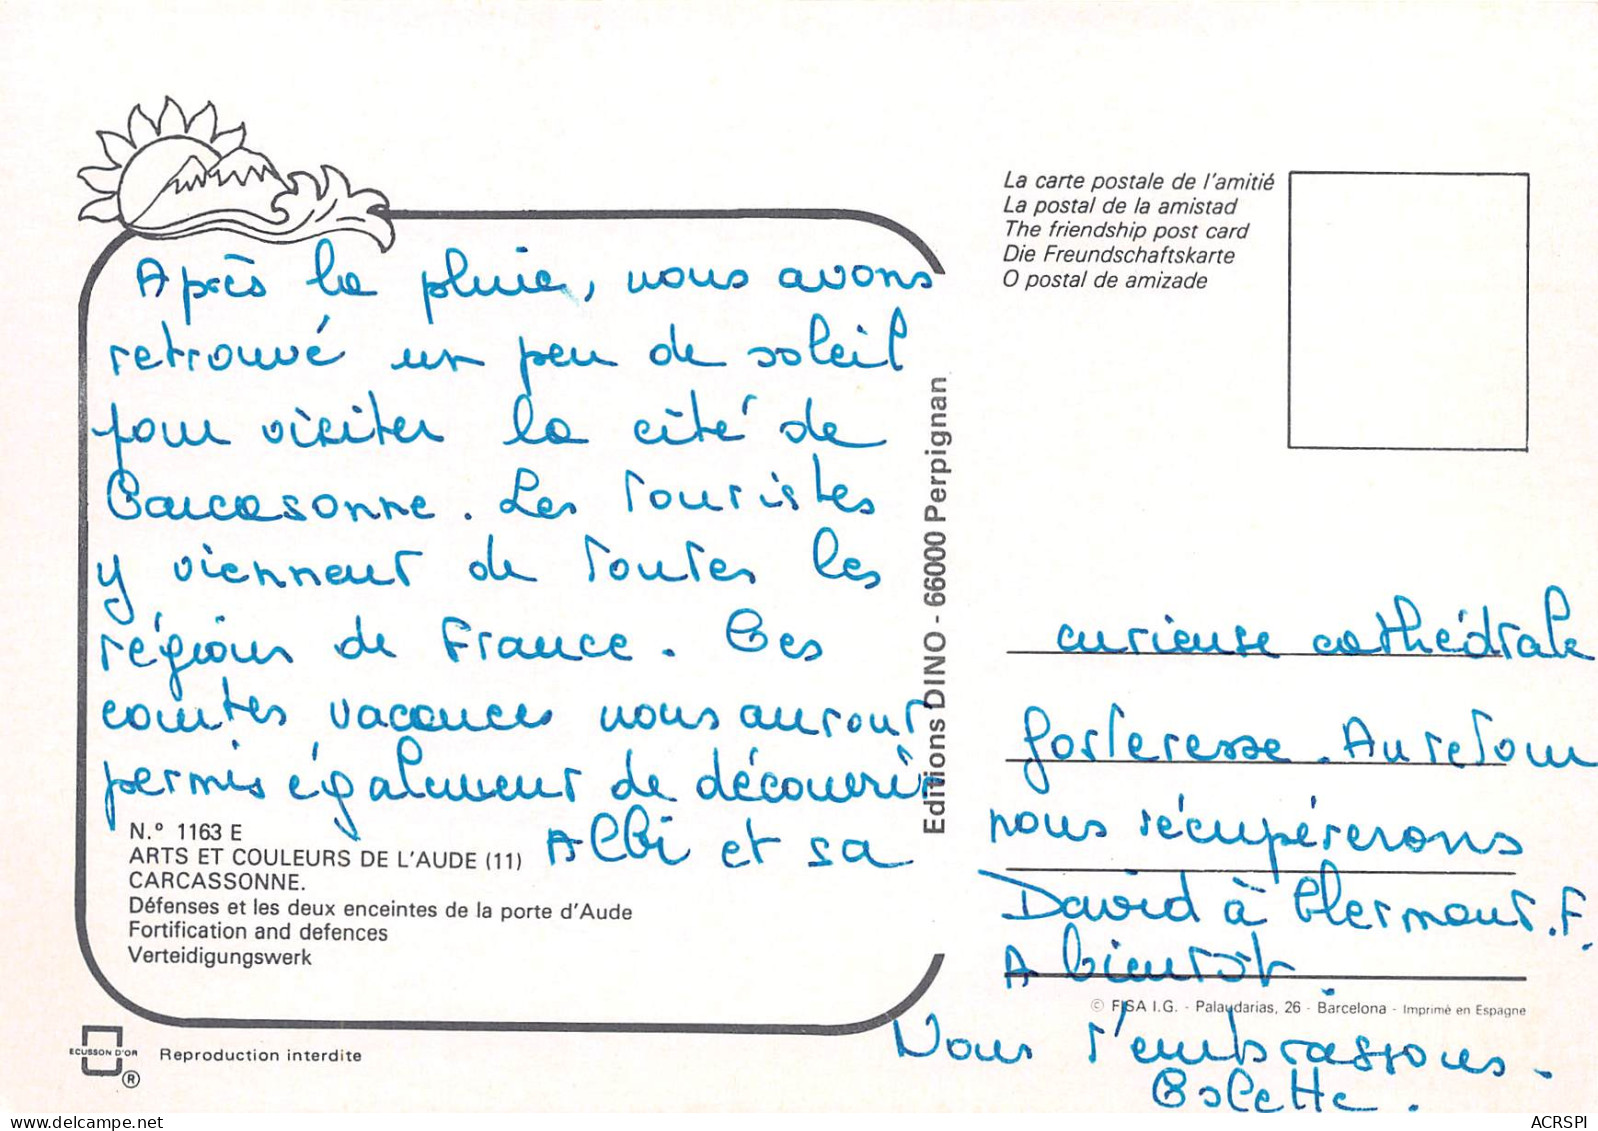 Après la pluie, nous avons
retrouvé un peu de soleil
pour visiter la cité de
Carcasonne. Les Touristes
y viennent de Toutes les
régions de France. Ces
courtes vacances nous auront
permis également de découvrir
Albi et sa
N.º 1163 E
ARTS ET COULEURS DE L'AUDE (11)
CARCASSONNE.
Défenses et les deux enceintes de la porte d'Aude
Fortification and defences
Verteidigungswerk
ECUSSON D'OR
®
Reproduction interdite
Editions DINO - 66000 Perpignan
La carte postale de l'amitié
La postal de la amistad
The friendship post card
Die Freundschaftskarte
O postal de amizade
curieuse cathédrale
forteresse. Au retour
nous récupérerons
David à Clermont. F.
A bientôt
© FISA I.G. - Palaudarias, 26 - Barcelona - Imprimé en Espagne
Nous t'embrassons.
Colette.
ACRSPI